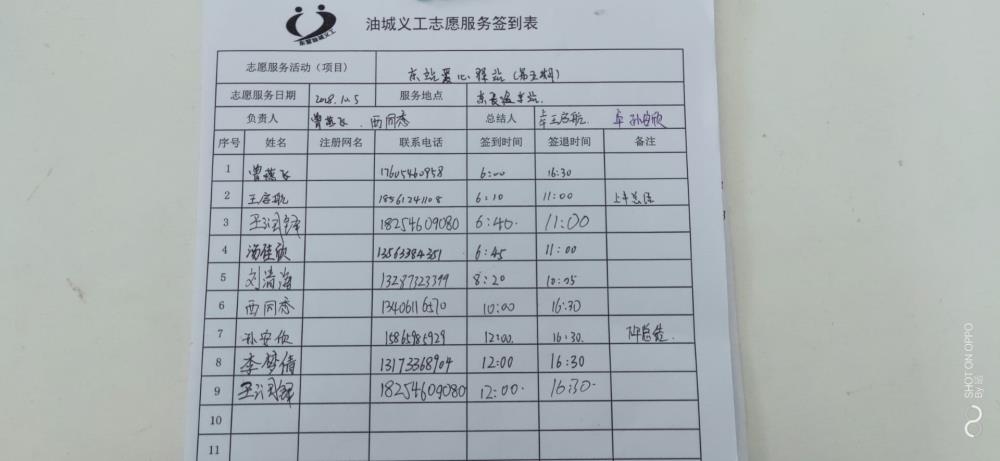 东营油城义工
油城义工志愿服务签到表
志愿服务活动（项目） 东站爱心驿站（第五期）
志愿服务日期 2018.10.5 服务地点 东营汽车站.
负责人 曾燕飞 . 西同恋 总结人 王启航 孙安欣
序号 姓名 注册网名 联系电话 签到时间 签退时间 备注
1 曾燕飞 17605460958 6:00 16:30
2 王启航 18561241108 6:10 11:00 上午总结
3 18254609080 6:40. 11:00
4 汤佳欣 13563384351 6:45 11:00
5 刘清海 13287323399 8:20 10:05
6 西同恋 13406116570 10:00 16:30
7 孙安欣 15865985929 12:00. 16:30. 下午总结.
8 李梦倩 13173368904 12:00 16:30
9 18254609080 12:00. 16:30.
10
11
SHOT ON OPPO